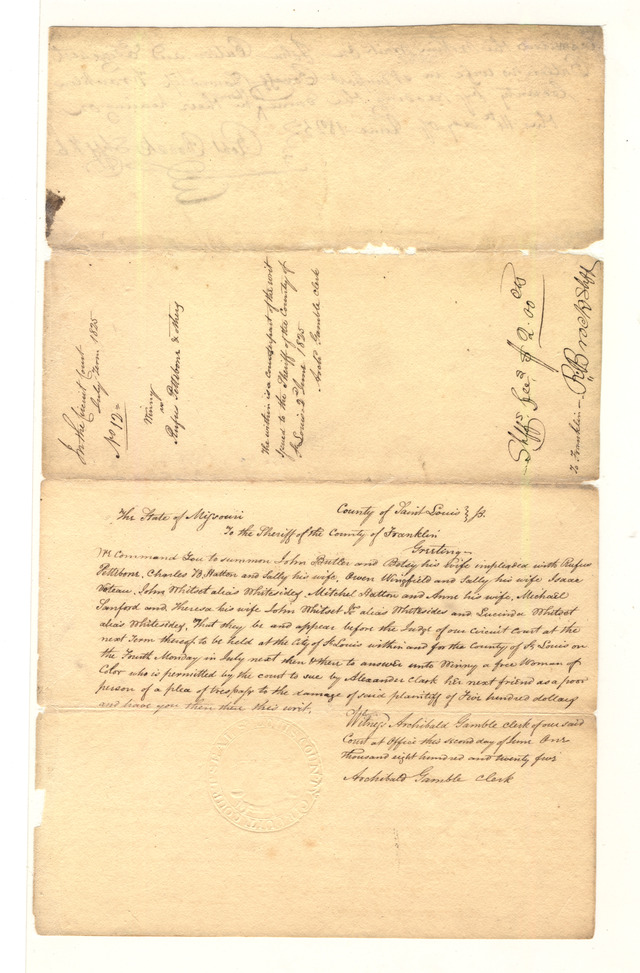 In the Circuit Court
July Term 1825
No 12
Winny
vs
Rufus Pettibone & others
The within is a counterpart of the writ
issued to the Sheriff of the County of
St Louis 2d June 1825
Archd Gamble Clerk
Shffs fees $ 2.00 cts
R. Brock Shff
To Franklin
The State of Missouri County of Saint Louis } ss.
To the Sheriff of the County of Franklin
Greeting
We Command You to summon John Butler and Betsy his Wife impleaded with Rufus
Pettibone, Charles B. Hatton and Sally his wife, Owen Wingfield and Sally his wife Isaac
Voteau, John Whitset alias Whitesides, Mitchel Hatton and Anne his wife, Michael
Sanford and Theresa his wife John Whitset Jr alias Whitesides and Lucinda Whitset
alias Whitesides, That they be and appear before the Judge of our Circuit Court at the
next term thereof to be held at the City of St Louis within and for the County of St Louis on
the Fourth Monday in July next then & there to answer unto Winny a free Woman of
Color who is permitted by the court to sue by Alexander Clark her next friend as a poor
person of a plea of trespass to the damage of said plaintiff of Five hundred dollars
and have you then there this writ.
Witness Archibald Gamble clerk of our said
Court at Office this second day of June One
thousand eight hundred and twenty five
Archibald Gamble Clerk